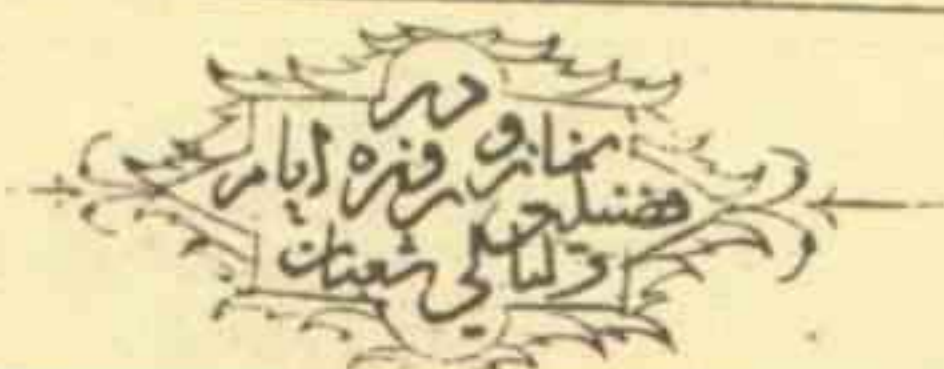 در
فضیلت نماز و روزه ایام
و لیالی شعبان